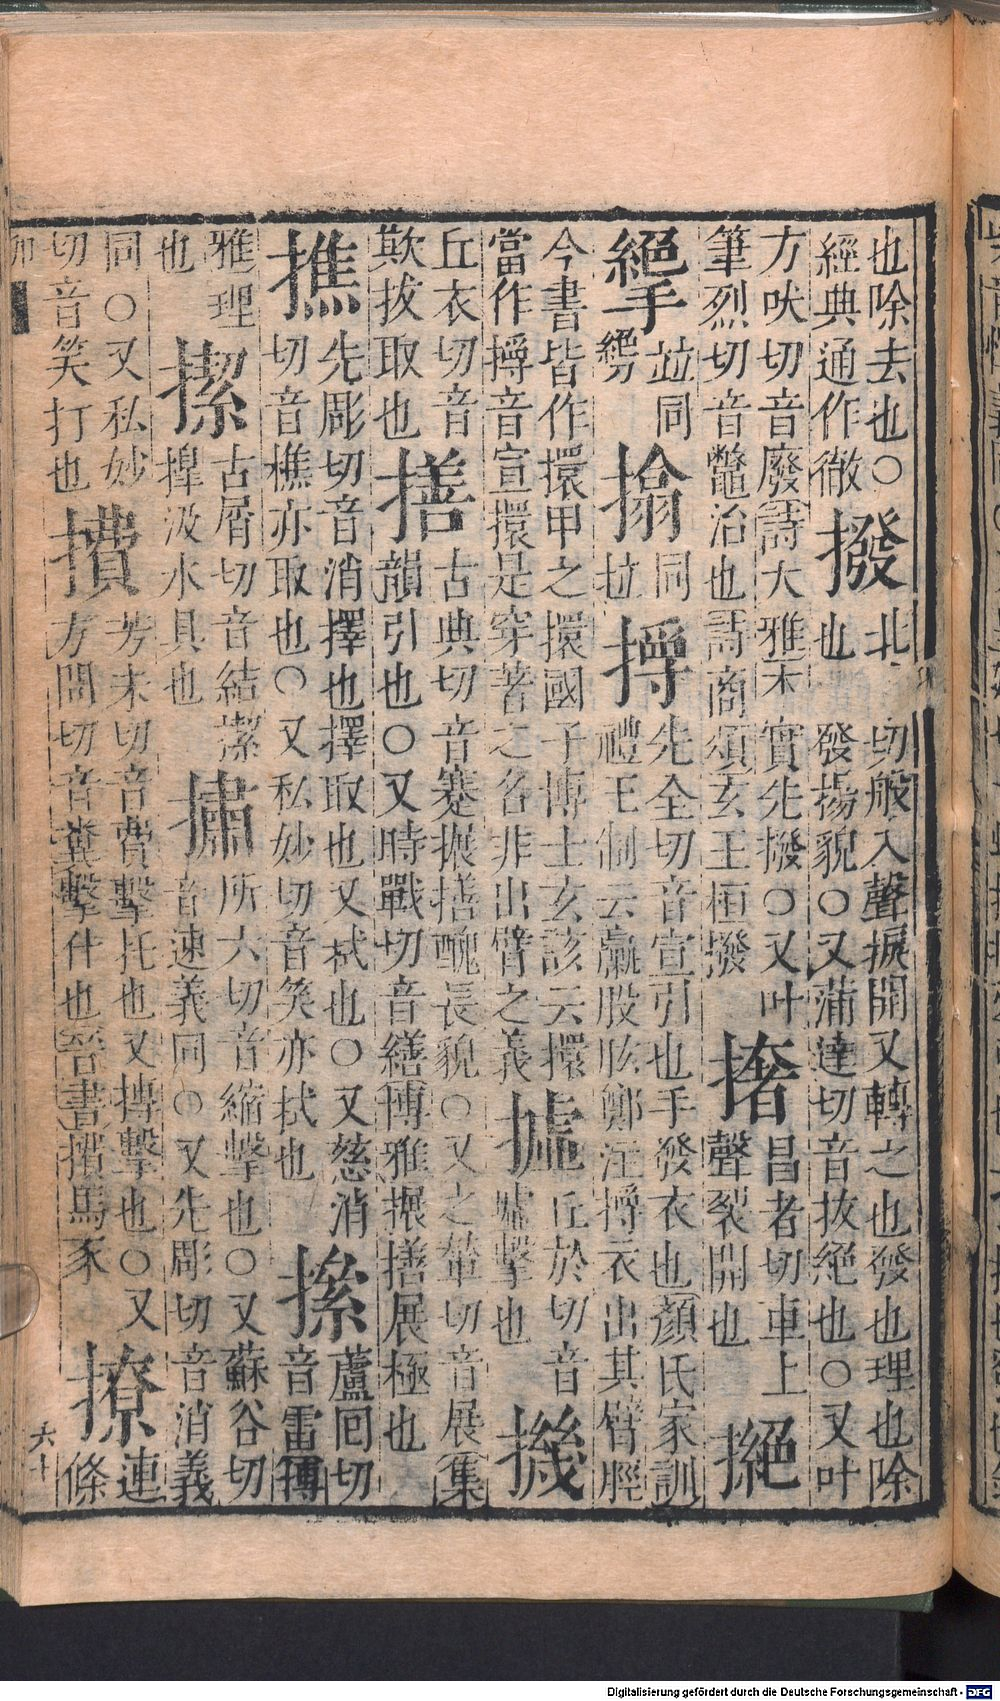 也除去也○
經典通作徹
撥
北 切般入聲捩開又轉之也發也理也除
也 發揚貌○又蒲達切音拔絕也○又叶
方吠切音廢詩大雅本實先撥○又叶
筆烈切音鼈治也詩商頌玄王桓撥
撦
昌者切車上
聲裂開也
並同
搚
同
拉
先全切音宣引也手發衣也顏氏家訓
禮王制云羸股肱鄭注 衣出其臂脛
今書皆作擐甲之擐國子博士玄該云擐
當作 音宣擐是穿著之名非出臂之義
丘於切音
墟擊也
丘衣切音
欺拔取也
古典切音蹇搌 醜長貌○又之輦切音展集
韻引也○又時戰切音繕博雅搌 展極也
撨
先彫切音消擇也擇取也又拭也○又慈消
切音樵亦取也○又私妙切音笑亦拭也
盧回切
音雷
雅理
也
古屑切音結潔
汲水具也
㩋
所六切音縮擊也○又蘇谷切
音速義同○又先彫切音消義
同○又私妙
切音笑打也
芳未切音費擊托也又摶擊也○又
方問切音糞擊仆也晉書 馬豕
撩
連
條
卯
六十
Digitalisierung gefördert durch die Deutsche Forschungsgemeinschaft - DFG